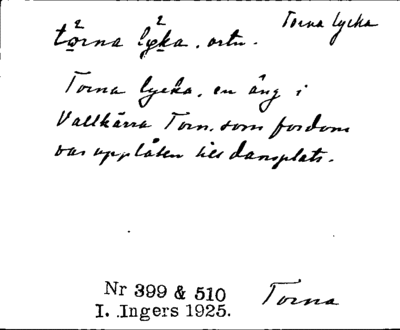 Torna lycka
tọ̈rna lyka. ortn.
Torna lycka, en äng i
Vallkärra Torn. som fordom
var upplåten till dansplats.
Nr 399 & 510
I. Ingers 1925.
Torna